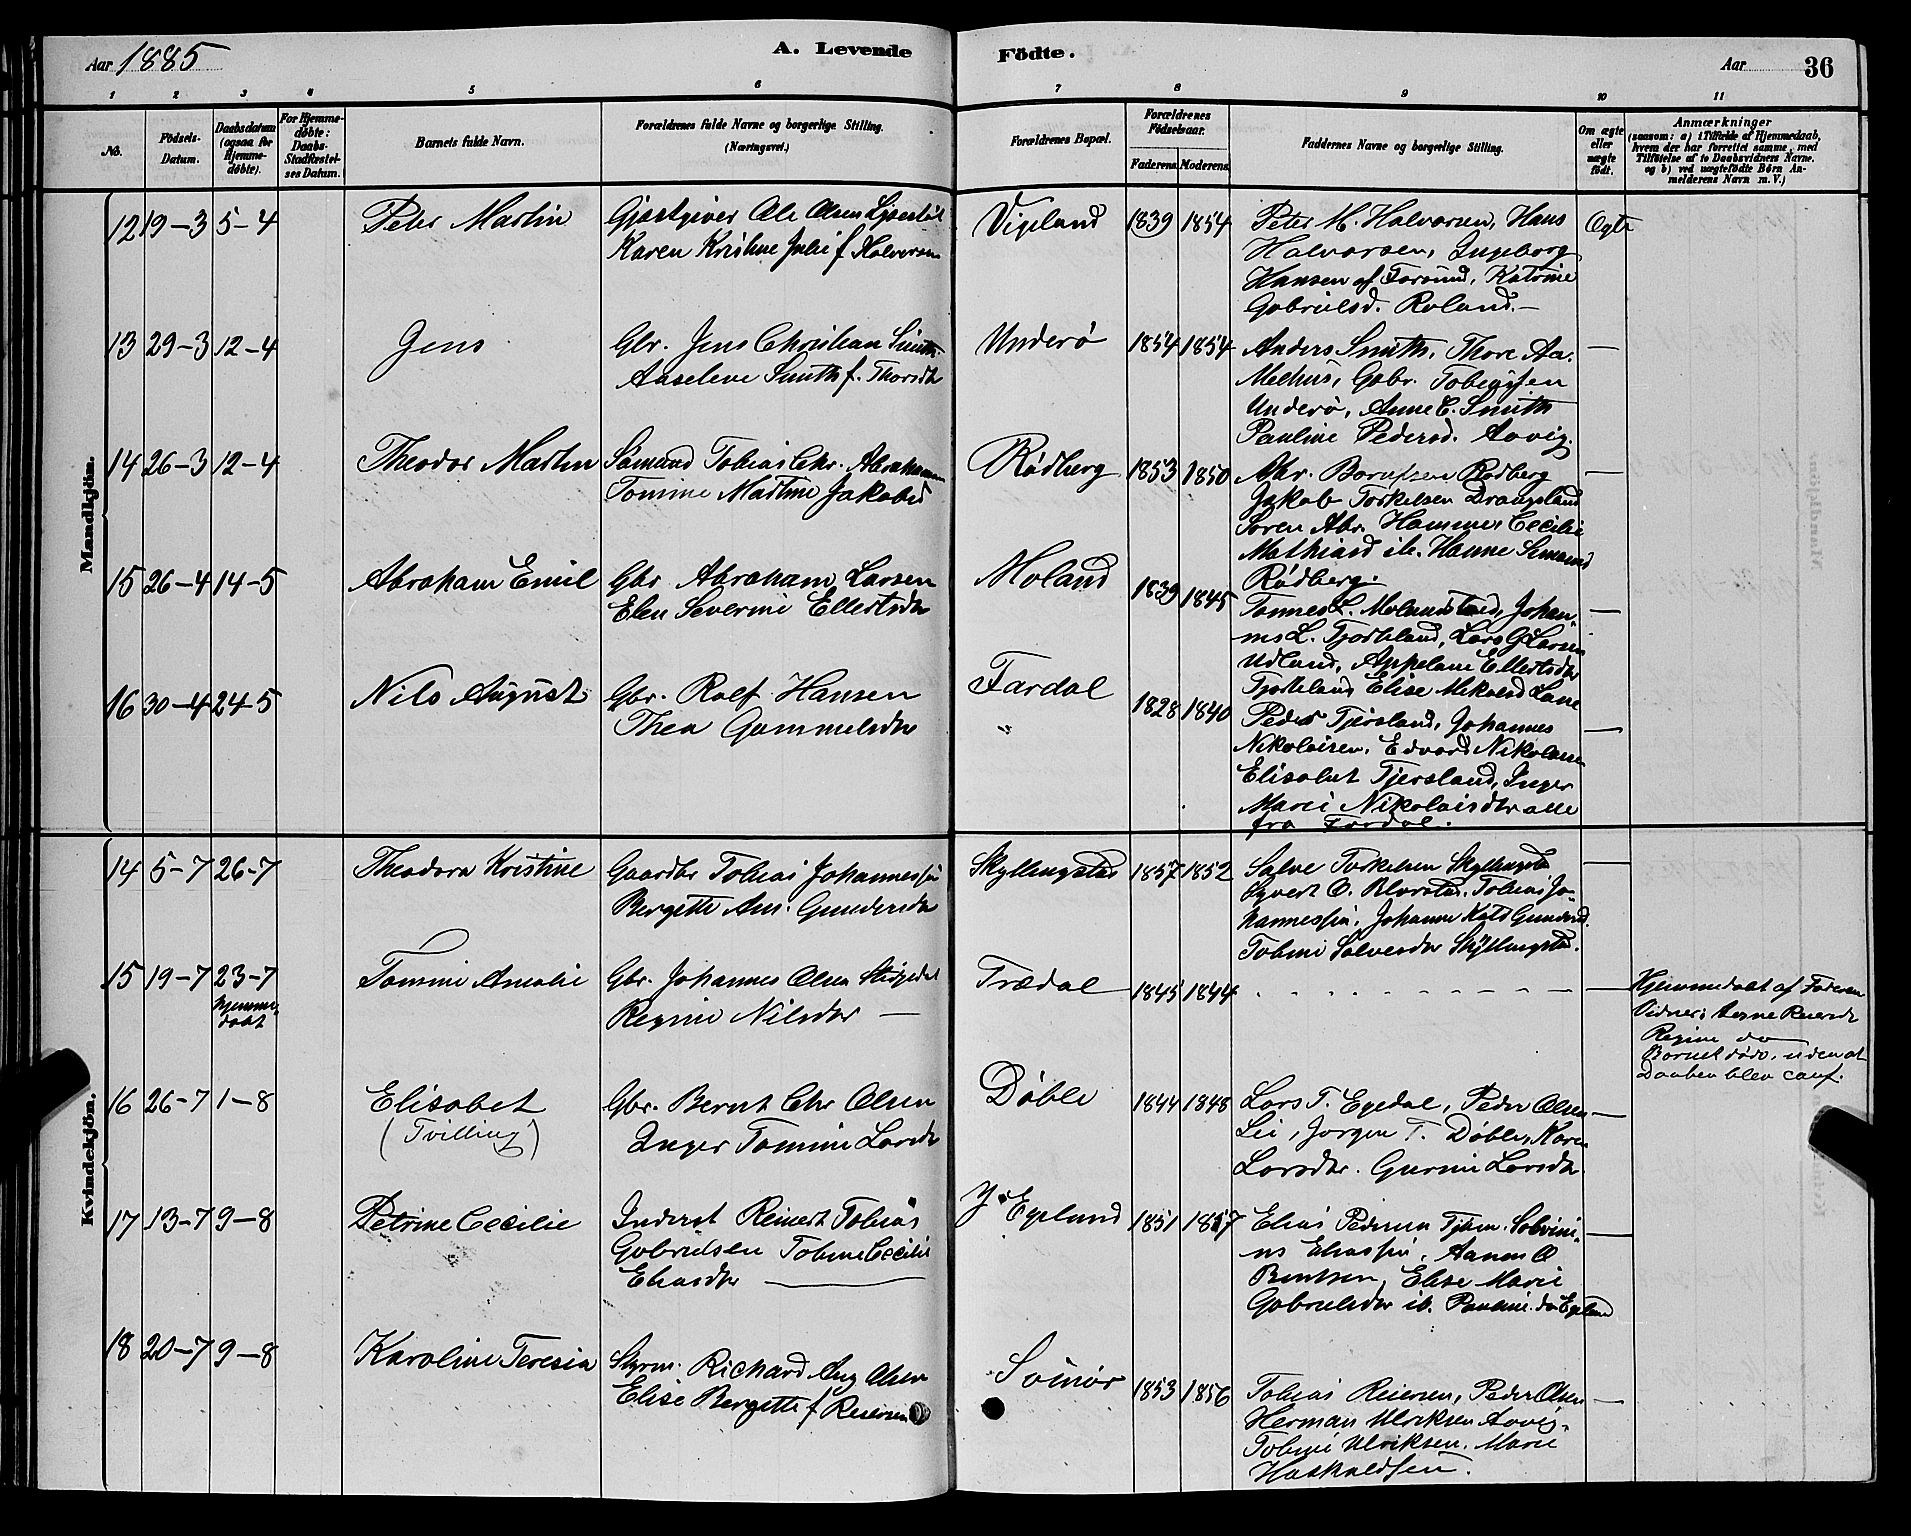 Aar 1885
A. Levende
Födte.
Aar
36
1 2 3 4 5 6 7 8 9 10 11
No.
Födsels-Datum.
Daabsdatum (ogsaa for Hjemme-döbte).
For Hjemme-döbte: Daabs-Stadfæstel-ses Datum.
Barnets fulde Navn.
Forældrenes fulde Navne og borgerlige Stilling. (Næringsvei.)
Forældrenes Bopæl.
Forældrenes Födselsaar.
Faderens. Moderens.
Faddernes Navne og borgerlige Stilling.
Om ægte eller uægte födt.
Anmærkninger
(saasom: a) i Tilfælde af Hjemmedaab, hvem der har forrettet samme, med Tilföielse af to Daabsvidners Navne, og b) ved uægtefödte Börn An-melderens Navn m. V.)
Mandkjön.
12 19-3 5-4 Peter Martin
Gjæstgiver Ole Olsen
Karen Kristine Julie f. Halvorsen
Vigeland 1839 1854
Peter M. Halvorsen, Hans
Halvorsen, Ingeborg
Hansen af Farsund, Katrine
Gabrielsd. Roland.
Ægte
13 29-3 12-4 Jens
Gbr. Jens Christian Smith
Aaselene Smith f. Thorsdtr
Underø 1854 1854
Anders Smith, Thore Aa.
Melhus, Gabr. Tobiassen
Underø, Anne C. Smith
Pauline Pedersd. Aavig.
—
14 26-3 12-4 Theodor Martin
Sømand Tobias Chr. Abrahamsen
Tomine Martine Jakobsd
Rødberg 1853 1850
Abr. Berntsen Rødberg
Jakob Torkelsen Drangsland
Søren Abr. Hammer Cecilie
Mathiasd ib. Hanne
Rødberg.
—
15 26-4 14-5 Abraham Emil
Gbr Abraham Larsen
Elen Severine Ellertsdtr
Moland 1839 1845
Tønnes L. Molandstad, Johan-
nes L. Tjørkeland, Lars G Larsen
Udland, Appelone Ellertsdtr
Tjørkeland Elise Mikaelsd Lane
—
16 30-4 24-5 Nils August
Gbr. Rolf Hansen
Thea Gammelsdtr
Fardal
"
1828 1840
Peder Tjersland, Johannes
Nikolaisen, Edvard Nikolaisen
Elisabet Tjersland, Inger
Marie Nikolaisdtr alle
fra Fardal.
—
Kvindekjön.
14 5-7 26-7 Theodora Kristine
Gaardbr Tobias Johannessen
Bergette Am. Gundersdtr
Skyllingstad 1857 1852
Salve Torkelsen Skyllingstd
Syvert O. Tobias Jo-
hannessen, Johanne Kat Gundersd.
Tobine Salvesdtr Skyllingstad.
—
15 19-7 23-7
hjemme-
døbt
Tomine Amalie
Gbr. Johannes Olsen
Regine Nilsdtr —
Trædal 1845 1844
—
Hjemmedøbt af Faderen
Vidner: Reiersdt
Regine do
Barnet døde, uden at
Daaben blev conf.
16 26-7 1-8 Elisabet
(Tvilling)
Gbr. Bernt Chr Olsen
Inger Tomine Larsdtr
Døble 1844 1848
Lars T. Egedal, Peder Olsen
Lie, Jørgen T. Døble, Karen
Larsdtr. Gurine Larsdtr.
—
17 13-7 9-8 Petrine Cecilie
Inderst Reinert Tobias
Gabrielsen Tobine Cecilie
Eliasdtr —
Y. Egeland 1851 1857
Elias Pedersen
Eliassen,
Berntsen, Elise Marie
Gabrielsdtr ib. Pauline do Egeland
—
18 20-7 9-8 Karoline Teresia
Styrm. Richard Aug Olsen
Elise Bergette f Reiersen
1853 1856
Tobias Reiersen, Peder Olsen
Herman Ulriksen Aavig,
Tobine Ulriksen. Marie
—